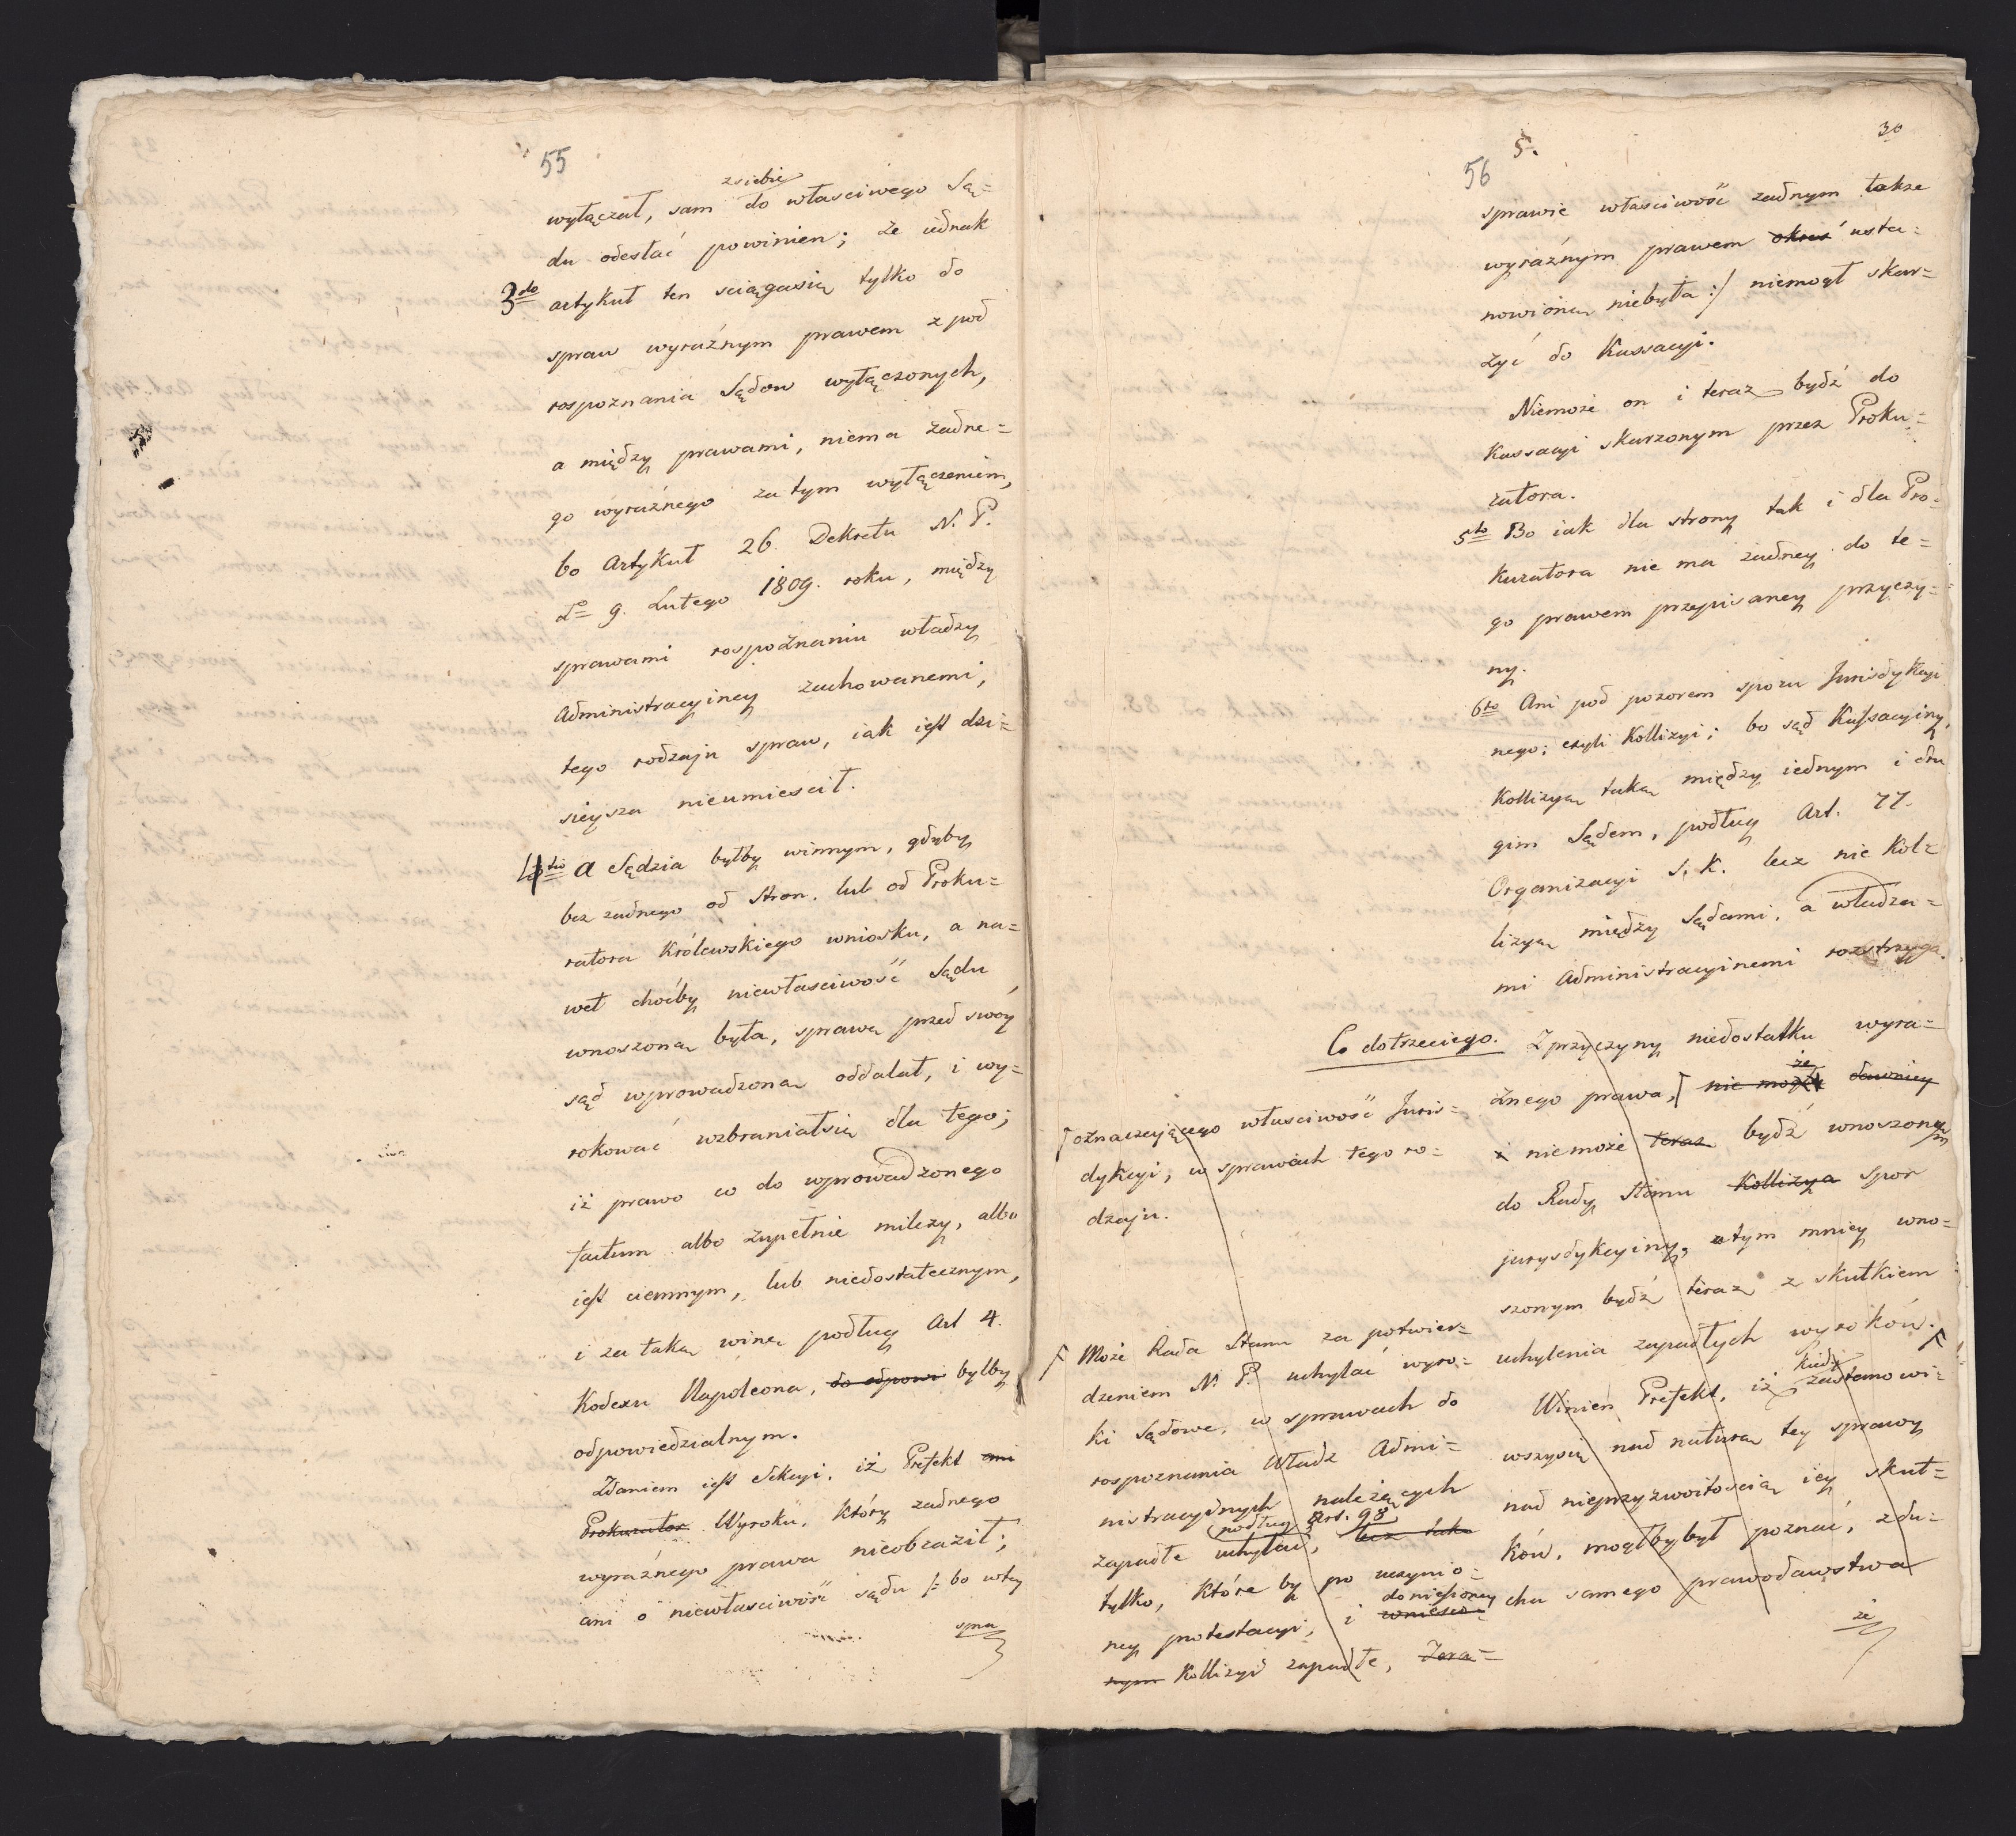 55
zsiebie
wyłączał, sam do własciwego Są=
du odesłać powinien; że iednak
3do artykuł ten sciągasię tylko do
spraw wyraźnym prawem z pod
rospoznania Sądow wyłączonych,
a między prawami, niema żadne=
go wyraźnego za tym wyłączeniem,
bo Artykuł 26 Dekretu N. P.
Do 9. Lutego 1809. roku, między
sprawami rospoznaniu władzy
Administracyiney zachowanemi,
tego rodzaju spraw, iak iest dzi=
sieysza nieumiescił.
4to a Sędzia byłby winnym, gdyby
bez żadnego od Stron, lub od Proku=
ratora Królewskiego wniosku, a na=
wet choćby niewłasciwość Sądu
wnoszoną była, sprawę przed swóy
sąd wprowadzoną oddalał, i wy=
rokować wzbraniałsię dla tego;
iż prawo co do wprowadzonego
factum albo zupełnie milczy, albo
iest ciemnym, lub niedostatecznym,
i za taką winę podług Art 4.
Kodexu Napoleona, do odpowi byłby
odpowiedzialnym.
Zdaniem iest Sekcyi, iż Prefekt ani
Prokurator Wyroku, który żadnego
wyraźnego prawa nieobraził;
ani o niewłasciwość sądu /: bo w tey
spra
56 5. 30
sprawie własciwość żadnym także
wyraźnym prawem okres usta=
nowioną niebyła :/ niemogł skar=
żyć do Kassacyi.
Niemoże on i teraz bydź do
Kassacyi skarzonym przez Proku=
ratora.
5to Bo iak dla strony tak i dla Pro=
kuratora nie ma żadney do te=
go prawem przepisaney przyczy=
ny.
6to Ani pod pozorem sporu Jurisdykcyi
nego; czyli Kollizyi; bo sąd Kassacyiny,
Kollizyą taką między iednym i dru
gim Sądem, podług Art. 77.
Organizacyi S. K. lecz nie Kol=
lizyą między Sądami, a władza=
mi Administracyinemi rozstrzyga.
Co do trzeciego. Z przyczyny niedostatku wyra=
że
źnego prawa, nie mogł dawniey
i niemoże teraz bydź wnoszonym
do Rady Stanu Kollizya Spor
jurysdykcyiny, a tym mniey wno=
szonym bydź teraz z skutkiem
uchylenia zapadłych wyroków.
kiedy
Winien Prefekt, iż zastanowi=
wszysię nad naturą tey sprawy
nad nieprzyzwoitoscią iey skut=
ków, mogłby był poznać, z du=
chu samego prawodawstwa
że
oznaczającego własciwość Juris=
dykcyi, w sprawach tego ro=
dzaju.
Może Rada Stanu za potwier=
dzeniem N. P. uchylać wyro=
ki Sądowe, w sprawach do
rospoznania Władz Admi=
nistracyinych należących
podług Art. 98
zapadłe uchylać, lecz takie
tylko, które by po uczynio=
doniesioney
ney protestacyi, i wniesio
nym Kollizyi zapadłe,